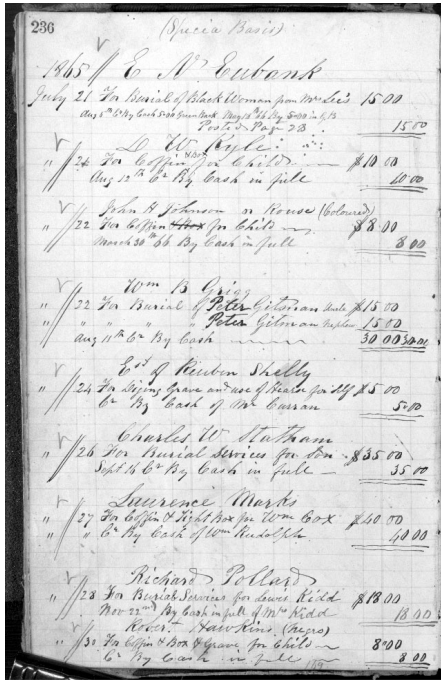 236
(Specia Basis)
1865 E N Eubank
July 21 For Burial of Black Woman from Mrs Lee's 15 00
Aug 5th Cr By Cash 5.00 Green Back May 16th 66 By 5.00 in
Posted Page 28 15 00
D W Lyle
" 21 For Coffin & Box for Child $10 00
Aug 12th Cr By Cash in full 10 00
John H Johnson or Rouse (Coloured)
" 22 For Coffin & Box for Child $8 00
March 30th 66 By Cash in full 8 00
Wm B Grigg
" 22 For Burial of Peter Gilman $15 00
" " " " " Peter Gilman 15 00
Aug 11th Cr By Cash 30 00 30 00
Est of Reubin Shelly
" 24 For Diging Grave and use of Hearse for Self $5 00
Cr By Cash of Mr Curran 5 00
Charles W Statham
" 26 For Burial Services for Son $35 00
Sept 16 Cr By Cash in full 35 00
Laurence Marks
" 27 For Coffin & Tight Box for Wm Cox $40 00
" Cr By Cash of Wm Rudolph 40 00
Richard Pollard
" 28 For Burial Services for Lewis Kidd $18 00
Nov 22nd By Cash in full of Mrs Kidd 18 00
Robert Hawkins (Negro)
" 30 For Coffin & Box & Grave for Child 8 00
Cr By Cash in full 8 00